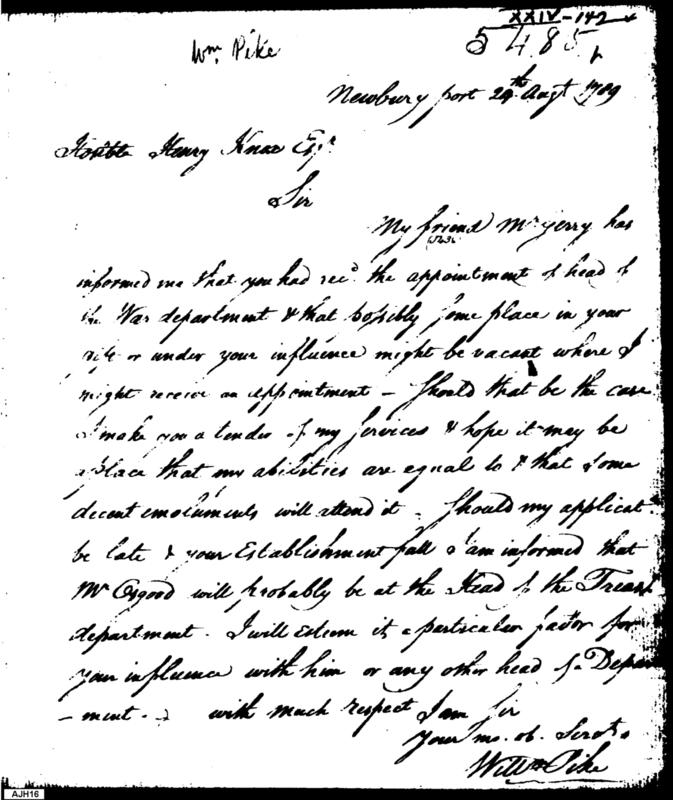 XXIV-142
5485
Wm. Pike
Newbury port 24th. Augt 1789
Honble Henry Knox Esqr.
Sir
My friend Mr. Gerry has
informed me that you had recd. the appointment of head of
the War department & that possibly some place in your
gift or under your influence might be vacant where I
might receive an appointment – Should that be the case
I make you a tender of my Services & hope it may be
a place that my abilities are equal to & that some
decent emoluments will attend it – Should my applicat.
be late & your Establishment full & I am informed that
Mr Osgood will probably be at the Head of the Treasy
department. I will esteem it a particular favor for
your influence with him or any other head of a Depart
– ment. – with much respect I am Sir
Your mo. ob. Servt.
Willm Pike
AJH16